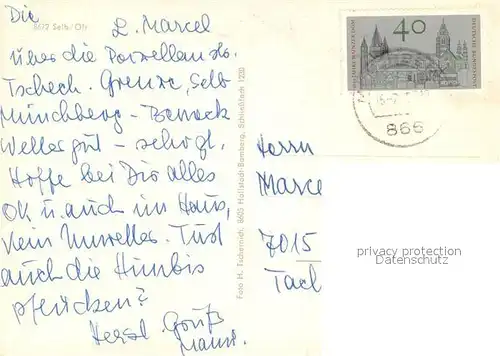 Die
8672 Selb/Ofr.
L. Marcel
über die Porzellanstr.
Tschech. Grenze, Selb
Münchberg - Berneck
Wetter gut - sehr gl.
Hoffe bei Dir alles
OK u. auch im Haus,
kein Unwetter. Tust
auch die Himbis
pflücken?
Herzl. Gruß
Mami.
Foto H. Tschernich, 8605 Hallstadt-Bamberg, Schloßstadt 1200
40
1000 JAHRE MAINZER DOM
DEUTSCHE BUNDESPOST
866
Herrn
Marce
7015
Tael
privacy protection
Datenschutz